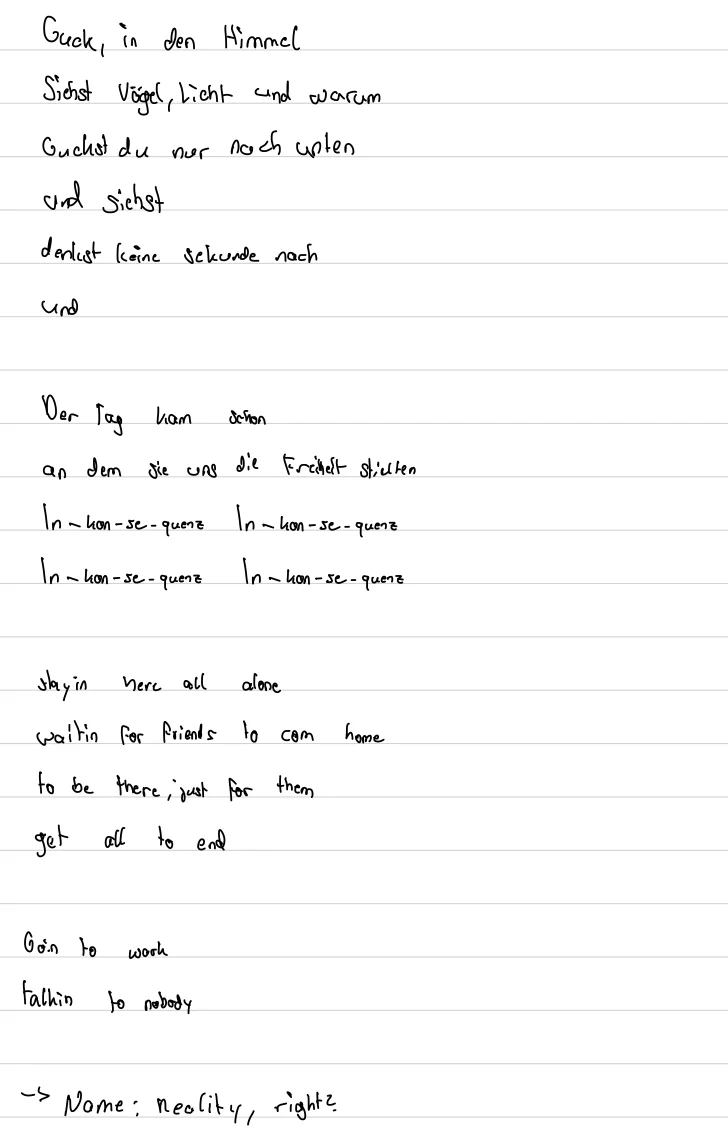 Guck, in den Himmel
Siehst Vögel, Licht und warum
Guckst du nur nach unten
und siehst
denkst keine sekunde nach
und
Der Tag kam schon
an dem sie uns die Freiheit stielten
In-kon-se-quenz In-kon-se-quenz
In-kon-se-quenz In-kon-se-quenz
stayin here all alone
waitin for friends to com home
to be there, just for them
get all to end
Goin to work
talkin to nobody
-> Name: neality, right?